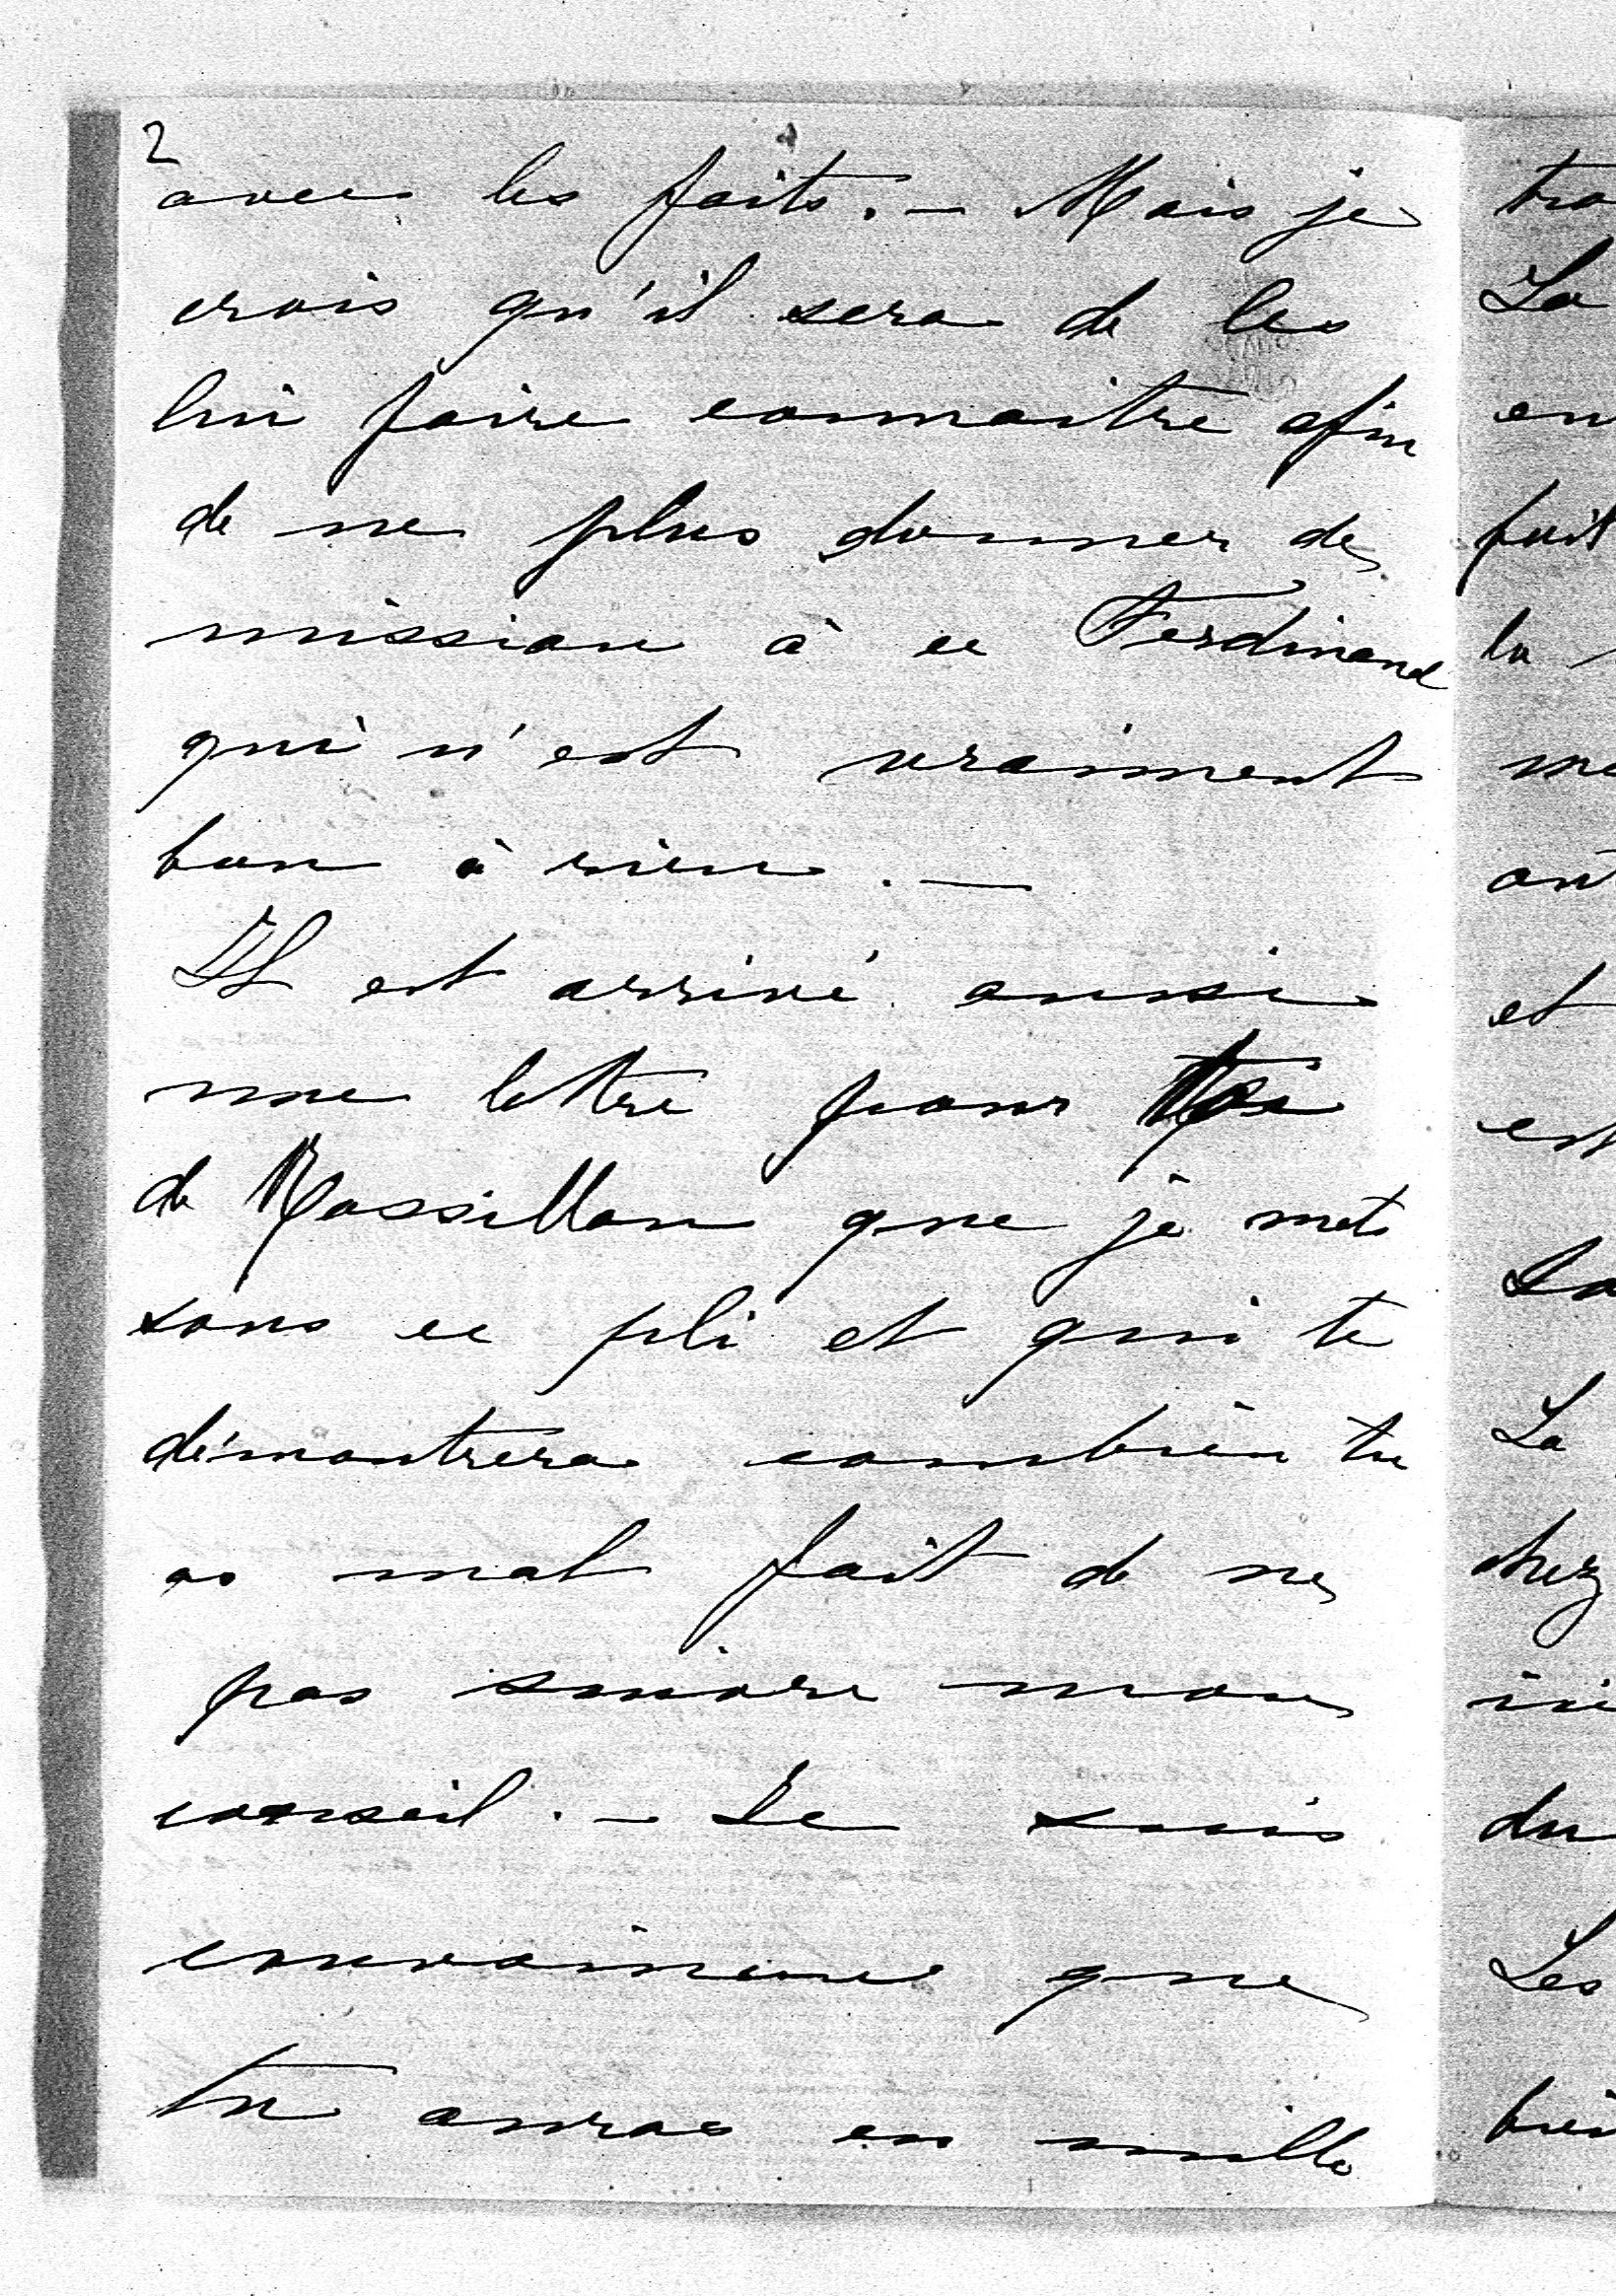 2
avec les faits. — Mais je
crois qu'il sera de les
lui faire connaitre afin
de ne plus donner de
mission à ce Ferdinand
qui n'est vraiment
bon à rien. —
Il est arrivé aussi
une lettre pour toi
de Massillon que je mets
sous ce pli et qui te
démontrera combien tu
as mal fait de ne
pas suivre mon
conseil. — Je suis
convaincue que
tu auras en mille
tra
La
en
fait
la
me
ont
et
est
La
La
chez
ici
du
Les
bien